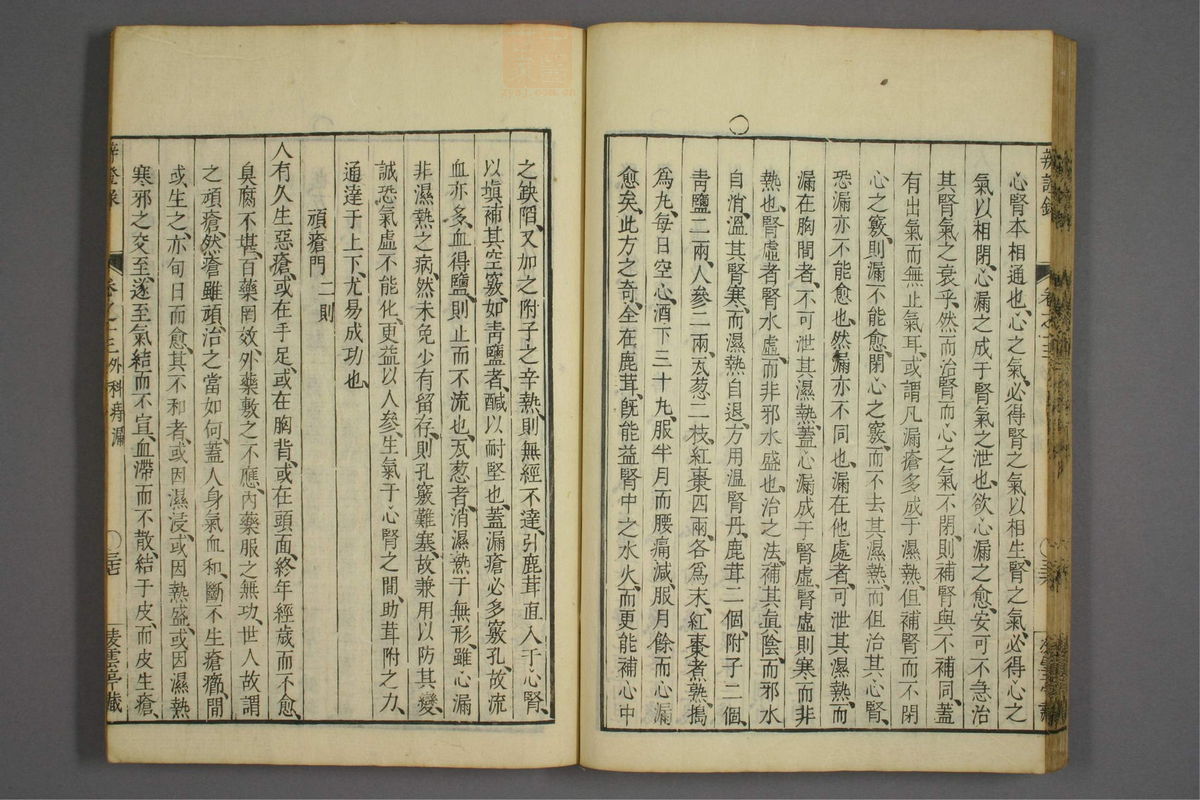 心腎本相通也、心之氣、必得腎之氣以相生、腎之氣、必得心之
氣以相閉、心漏之成于腎氣之泄也、欲心漏之愈、安可不急治
其腎氣之衰乎、然而治腎而心之氣不閉、則補腎與不補同、蓋
有出氣而無止氣耳、或謂凡漏瘡多成于濕熱、但補腎而不閉
心之竅、則漏不能愈、閉心之竅、而不去其濕熱、而但治其心腎、
恐漏亦不能愈也、然漏亦不同也、漏在他處者、可泄其濕熱、而
漏在胸間者、不可泄其濕熱、蓋心漏成于腎虛、腎虛則寒而非
熱也、腎虛者腎水虛、而非邪水盛也、治之法、補其眞陰、而邪水
自消、溫其腎寒、而濕熱自退、方用溫腎丹、鹿茸二個、附子二個、
靑鹽二兩、人參二兩、瓦葱二枝、紅棗四兩、各爲末、紅棗煮熟、搗
爲丸、每日空心、酒下三十丸、服半月而腰痛減、服月餘而心漏
愈矣、此方之奇、全在鹿茸、旣能益腎中之水火、而更能補心中
之缺陷、又加之附子之辛熱、則無經不達、引鹿茸直入于心腎、
以塡補其空竅、如靑鹽者、鹹以耐堅也、蓋漏瘡必多竅孔、故流
血亦多、血得鹽、則止而不流也、瓦葱者、消濕熱于無形、雖心漏
非濕熱之病、然未免少有留存、則孔竅難塞、故兼用以防其變、
誠恐氣虛不能化、更益以人參、生氣于心腎之間、助茸附之力、
通達于上下、尤易成功也
頑瘡門 二則
人有久生惡瘡、或在手足、或在胸背、或在頭面、終年經歲而不愈、
臭腐不堪、百藥罔效、外藥敷之不應、內藥服之無功、世人故謂
之頑瘡、然瘡雖頑、治之當如何、蓋人身氣血和、斷不生瘡癤、間
或生之、亦旬日而愈、其不和者、或因濕浸、或因熱盛、或因濕熱
寒邪之交至、遂至氣結而不宣、血滯而不散、結于皮、而皮生瘡、
辨證錄 卷之十三 外科痔漏 三七 凌雲亭藏